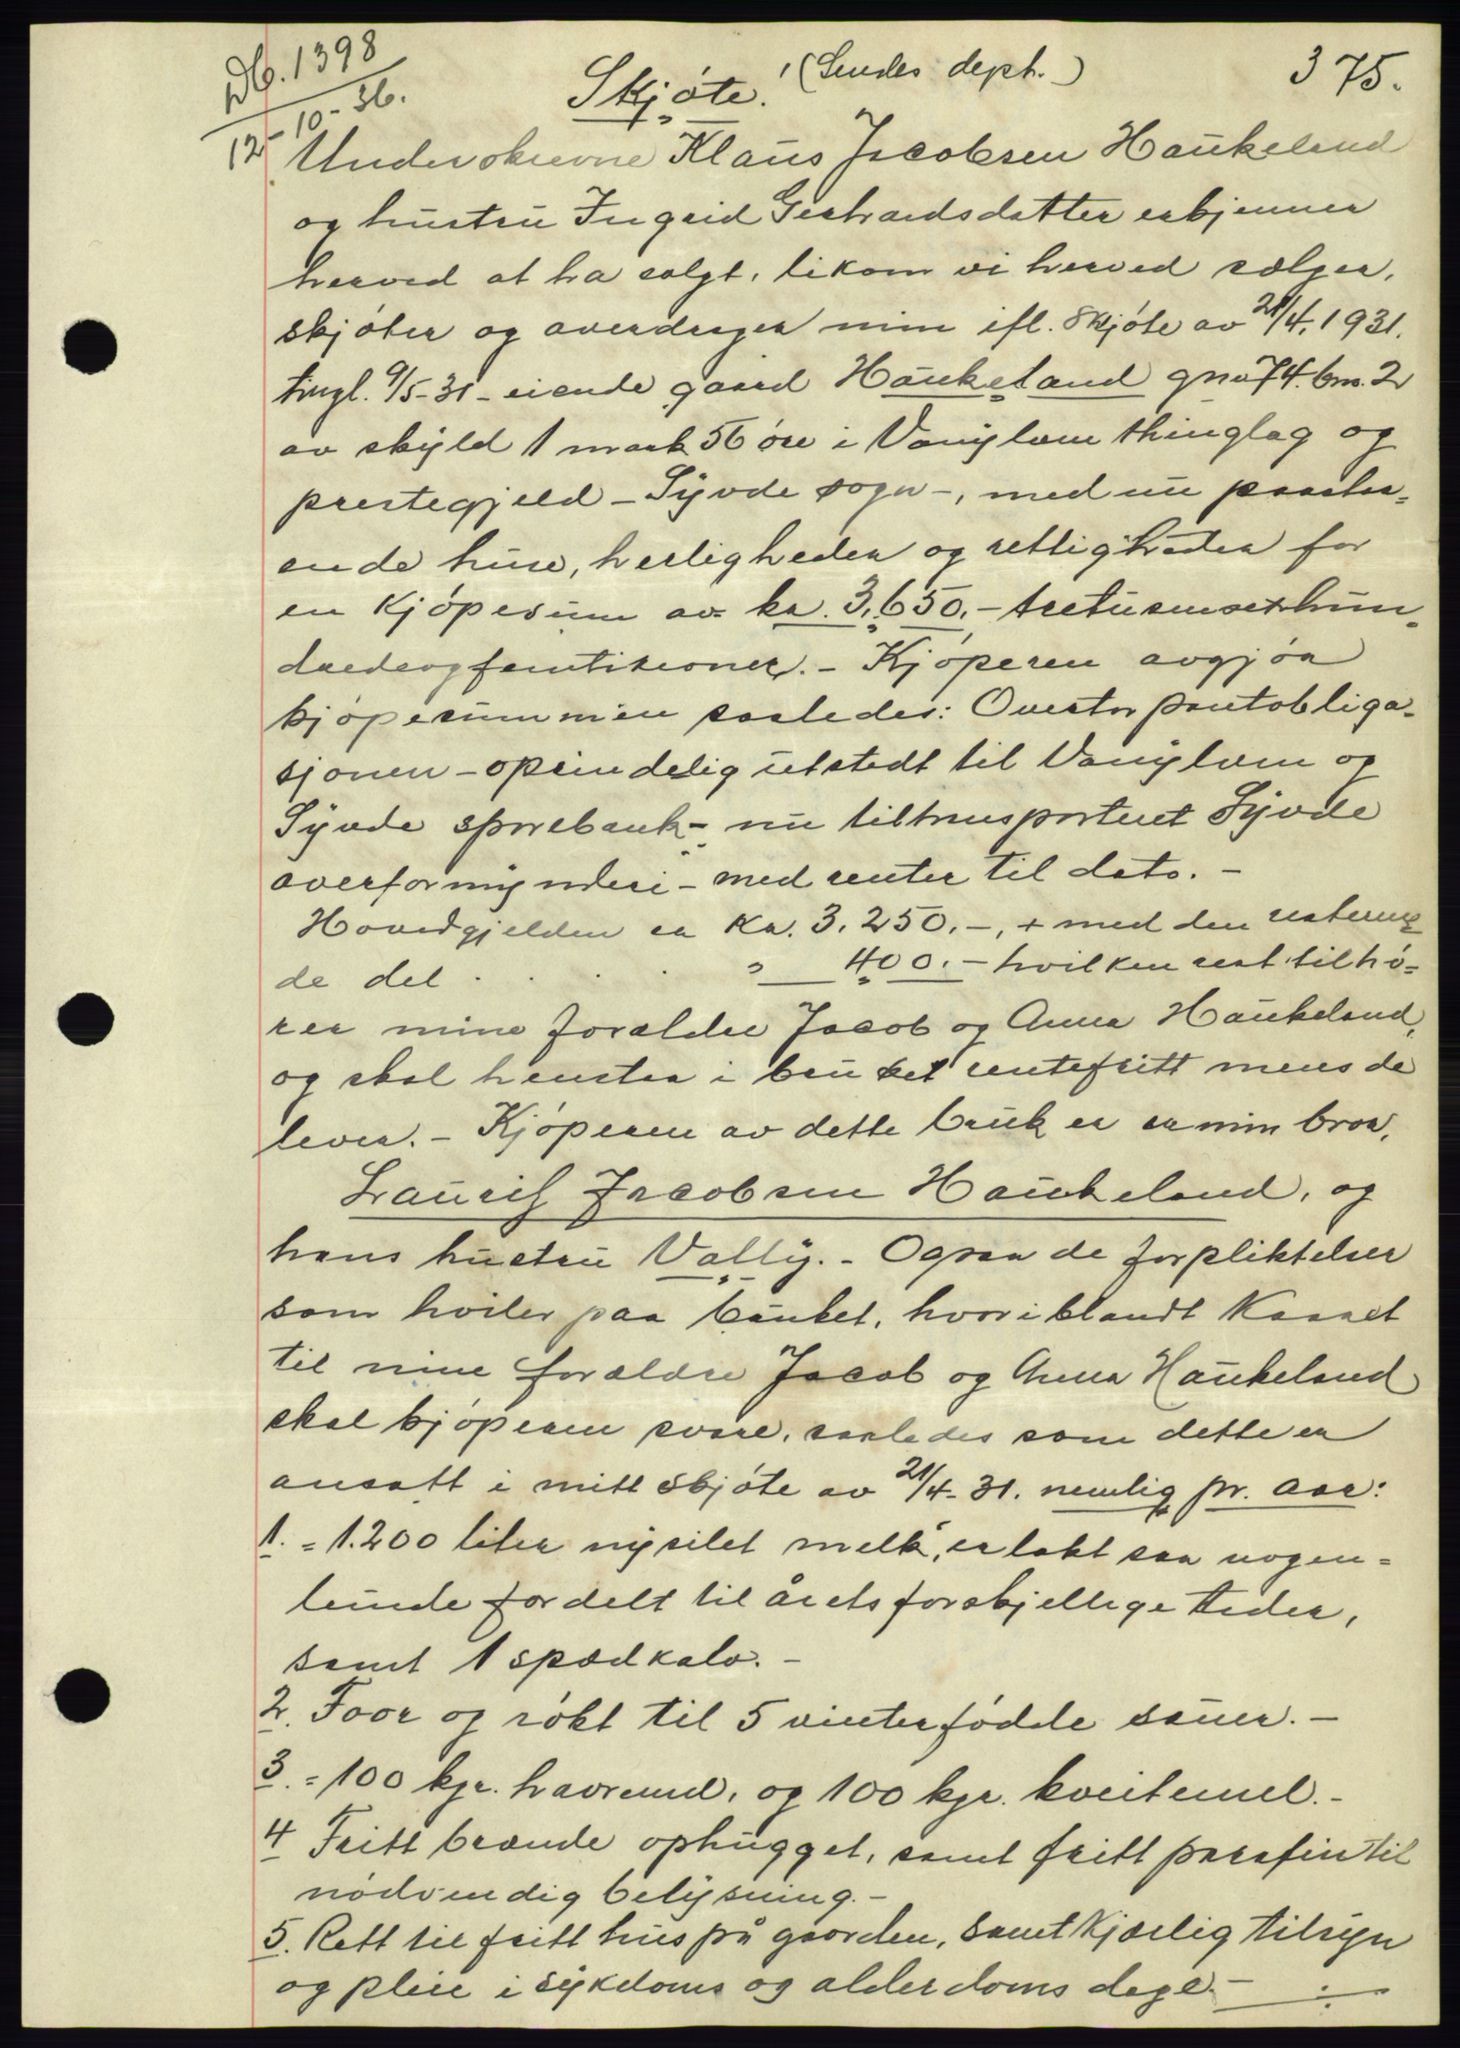 Db. 1398
12-10-36.
Skjøte. (Sendes dept.)
375.
Underskrevne Klaus Jacobsen Haukeland
og hustru Ingrid Gerhardsdatter erkjenner
herved at ha solgt, likom vi herved sælger,
skjøter og averdrager min ifl. skjøte av 21/4. 1931.
tingl. 9/5-31 - eiende gaard Haukeland gno 74. bno. 2
av skyld 1 mark 56 øre i Vanylven thinglag og
prestegjeld - Syvde sogn -, med nu paasta-
ende huse, herligheder og rettigheder for
en kjøpesum av kr. 3.650.- tretusensekshun-
dredeogfemtikroner. - Kjøperen avgjør
kjøpesummen saaledes: Overtar pantobliga-
sjonen - oprindelig utstedt til Vanylven og
Syvde sparebank - nu tiltransporteret Syvde
overformynderi - med renter til dato. -
Hovedgjelden er kr. 3.250.-, + med den resteren-
de del . . . . " 400.- hvilken rest tilhø-
rer mine forældre Jacob og Anna Haukeland,
og skal henstaa i bruket rentefritt mens de
lever. - Kjøperen av dette bruk er er min bror,
Laurits Jacobsen Haukeland, og
hans hustru Vally. - Ogsaa de forpliktelser
som hviler paa bruket, hvoriblandt kaaret
til mine forældre Jacob og Anna Haukeland
skal kjøperen svare, saaledes som dette er
ansatt i mitt skjøte av 21/4-31. nemlig pr. aar:
1. = 1.200 liter nysilet melk, erlakt saa nogen-
lunde fordelt til årets forskjellige tider,
samt 1 spædkalv. -
2. Foor og røkt til 5 vinterfødde sauer. -
3. = 100 kgr. havremel, og 100 kgr. kveitemel. -
4 Fritt brænde ophugget, samt fritt parafin til
nødvendig belysning. -
5. Rett til fritt hus på gaarden, samt kjærlig tilsyn
og pleie i sykdoms og alderdoms dage. -